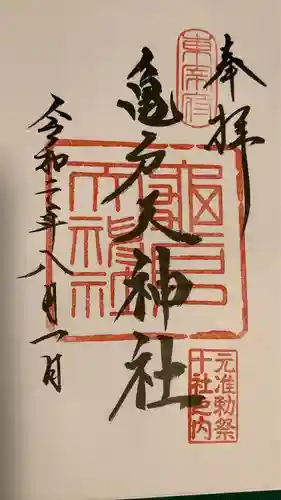 奉拝
東宰府
亀戸天神社
亀戸天神社
元准勅祭
十社之内
令和二年八月一日